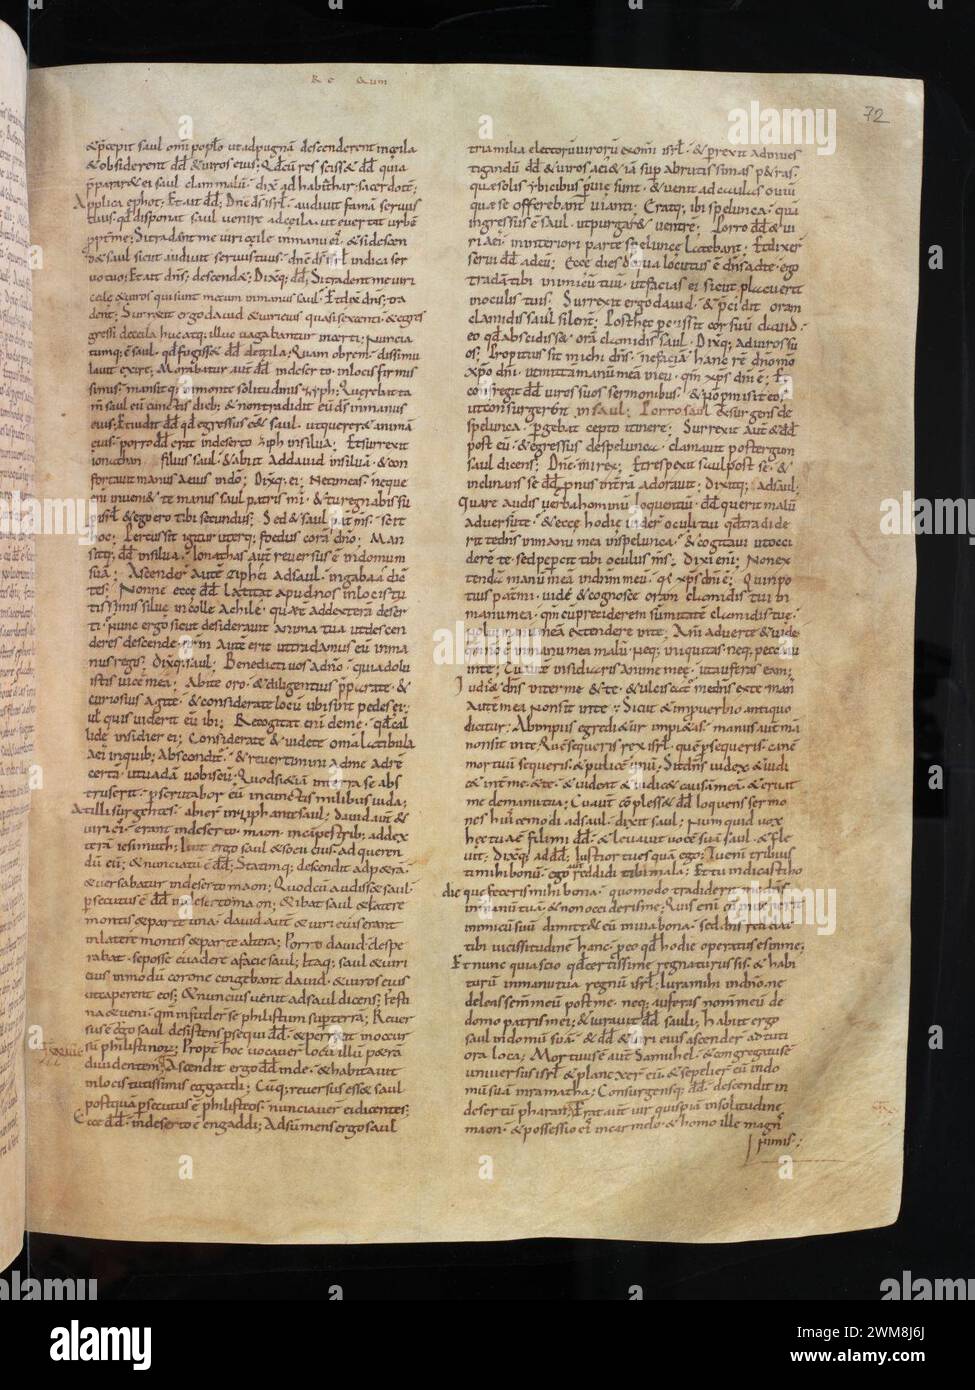 Re gum
72
& p̄cepit saul om̄i poplo ut adpugnā descenderent inceila
& obsiderent d̄d & uiros eius; Qd cū rescisset d̄d quia
p̄pararet ei saul clam malū · dix̄ ad habiathar sacerdotē;
Applica ephot; Et ait d̄d; Dn̄e d̄s isrl · audiuit famā seruus
tuus · qd disponat saul uenire ad ceila · ut euertat urbē
ppt̄ me; Si tradent me uiri ceile in manus ei; & si descen
d& saul sicut audiuit seruus tuus · dn̄e d̄s isrl indica ser
uo tuo; Et ait dn̄s; descendet; Dixitq; d̄d; Si tradent me uiri
ceile & uiros qui sunt mecum in manus saul · Et dix̄ dn̄s; tra
dent; Surrexit ergo dauid & uiri eius quasi sexcenti · & egres
si de ceila huc atq; illuc uagabantur incerti; Nuncia
tumq; ē saul · qd fugisset d̄d de ceila; Quam ob rem · dissimu
lauit exire; Morabatur aut̄ d̄d in deserto · in locis firmis
simis · mansitq; in monte solitudinis ziph; Querebat ta
m̄ saul eū cunctis dieb; & non tradidit eū d̄s in manus
eius; Et uidit d̄d qd egressus ēet saul · ut quereret animā
eius · porro d̄d erat in deserto ziph in silua; Et surrexit
ionathan filius saul · & abiit ad dauid in siluā · & con
fortauit manus eius in dō; Dixitq; ei; Ne timeas; neque
eni inueniet te manus saul patris mei · & tu regnabis su
p isrl & ego ero tibi secundus; Sed & saul pat ms̄ · scit
hoc; Percussit igitur uterq; foedus corā dn̄o; Man
sitq; d̄d in silua · Ionathas aut̄ reuersus ē in domum
suā; Ascender̄ aut̄ ziphei ad saul · in gabaa dicē
tes; Nonne ecce d̄d latitat apud nos in locis tu
tissimis silue in colle achile · que ē ad dexterā deser
ti · Nunc ergo sicut desiderauit anima tua ut descen
deres descende · nr̄m aut̄ erit ut tradamus eū in ma
nus regis; Dixitq; saul; Benedicti uos a dn̄o · quia dolu
istis uicē meā; Abite oro · & diligentius p̄parate · &
curiosius agite · & considerate locū ubi sit pes ei;
ul quis uiderit eū ibi; Recogitat eni de me · qd cal
lide insidier ei; Considerate & uidete om̄a latibula
& reuertimini ad me ad rē
certā · ut uadā uobiscū; Quod si & iā in terra se abs
truserit · p scrutabor eū in cunctis milibus iuda;
At illi surgentes · abier̄ in ziph ante saul; Dauid aut̄ &
uiri ei · erant in deserto maon · in campestrib; ad dex
terā iesimuth; Iuit ergo saul & socii eius · ad queren
dū eū; & nunciatū ē d̄d; Statimq; descendit ad petrā
& uersabatur in deserto maon; Quod cū audisset saul ·
p secutus ē d̄d in deserto maon; & ibat saul ad latere
montis ex parte una · dauid aut̄ & uiri ei erant
in latere montis ex parte altera; Porro dauid despe
rabat · se posse euadere a facie saul; Itaq; saul & uiri
eius in modū corone cingebant dauid · & uiros eius
ut caperent eos; & nuncius uenit ad saul dicens; Festi
na & ueni · qm̄ infuder̄ se philistim sup terrā; Reuer
sus ē ergo saul desistens p sequi d̄d · & perrexit in occur
sū philistinorū; Propt̄ hoc uocauer̄ locū illū petrā
diuidentem; Ascendit ergo d̄d inde · & habitauit
in locis tutissimis engaddi; Cūq; reuersus esset saul
postquā p secutus ē philisteos · nunciauer̄ ei dicentes;
Ecce d̄d · in deserto ē engaddi; Adsumens ergo saul
tria milia electorū uirorū ex om̄i isrl · & perrexit ad inues
tigandū d̄d & uiros ei · & iā sup abruptissimas petras ·
que solis ybicibus puie sunt · & uenit ad caulas ouiū
que se offerebant uianti · Eratq; ibi spelunca · quā
ingressus ē saul · ut purgaret uentrē; Porro d̄d & ui
ri ei · in interiori parte spelunce latebant; Et dixer̄
serui d̄d ad eū; Ecce dies de qua locutus ē dn̄s ad te · ego
tradā tibi inimicū tuū · ut facias ei sicut placuerit
in oculis tuis; Surrexit ergo dauid · & p̄cidit oram
clamidis saul silent̄; Post hec p cussit cor suū dauid ·
eo qd abscidisset orā clamidis saul; Dixitq; ad uiros su
os; Propitius sit michi dn̄s · ne faciā hanc rē dn̄o mō
xp̄o dn̄i · ut mittā manū meā in eū · qm̄ xp̄s dn̄i ē; Et
confregit d̄d uiros suos sermonibus · & n̄ p misit eos
ut consurgerent in saul; Porro saul exsurgens de
spelunca · p gebat cepto itinere; Surrexit aut̄ & d̄d
post eū · & egressus de spelunca · clamauit post tergum
saul dicens; Dn̄e mi rex; Et respexit saul post se · & in
clinans se d̄d pronus in terrā adorauit · Dixitq; ad saul;
Quare audis uerba hominū loquentiū · d̄d querit malū
aduersū te · & ecce hodie uider̄ oculi tui qd tradide
rit te dn̄s in manu mea in spelunca · & cogitaui ut occi
derē te · sed pepcit tibi oculus ms̄; Dixi eni; Non ex
tendā manū meā in dn̄m meū · q xp̄s dn̄i ē; Quin po
tius pat mi · uide & cognosce oram clamidis tue in
manu mea · qm̄ cū p̄ciderem sūmitatē clamidis tue ·
nolui manū meā extendere in te; Aniad uerte & uide
qm̄ n̄ ē in manu mea malū neq; iniquitas · neq; peccaui
in te; Tu aut̄ insidiaris anime mee · ut auferas eam;
Iudicet dn̄s inter me & te · & ulciscat me dn̄s ex te · man
aut̄ mea non sit in te; Sicut & in puerbio antiquo
dicitur; Ab impiis egredietur impietas · manus aut̄ m̄a
non sit in te; Quē sequeris rex isrl · quē psequeris · canē
mortuū sequeris · & pulicē unū; Sit dn̄s iudex & iudi
cet int̄ me & te · & uideat & iudicet causā meā · & eruat
me de manu tua; Cū aut̄ cōplesset d̄d loquens sermo
nes huiuscemodi ad saul · dixit saul; Numquid uox
hec tua ē fili mi d̄d · & leuauit uocē suā saul · & fle
uit · Dixitq; ad d̄d; Iustior tu es quā ego; Tu eni tribuis
ti mihi bona · ego aut̄ reddidi tibi mala; Et tu indicasti ho
die que feceris mihi bona · quomodo tradiderit me dn̄s
in manū tuā & non occideris me; Quis eni cū inuenerit
inimicū suū dimittet eū in uia bona · sed dn̄s reddat
tibi uicissitudinē hanc · p eo qd hodie operatus es in me;
Et nunc quia scio qd certissime regnaturus sis · & habi
turū in manu tua regnū isrl; Iura mihi in dn̄o · ne
deleas semē meū post me · neq; auferas nom̄ meū de
domo patris mei; & iurauit d̄d sauli; habiit ergo
saul in domū suā · & d̄d & uiri eius ascender̄ ad tuti
ora loca; Mortuus ē aut̄ Samuhel · & congregatus ē
uniuersus isrl & planxer̄ eū · & sepelier̄ eū in do
mū suā in ramatha; Consurgensq; d̄d · descendit in
desertū pharan; Erat aut̄ uir quispiā in solitudine
maon · & possessio ei in carmelo · & homo ille magn
nimis;
alamy
Image ID: 2WM8J6J
www.alamy.com